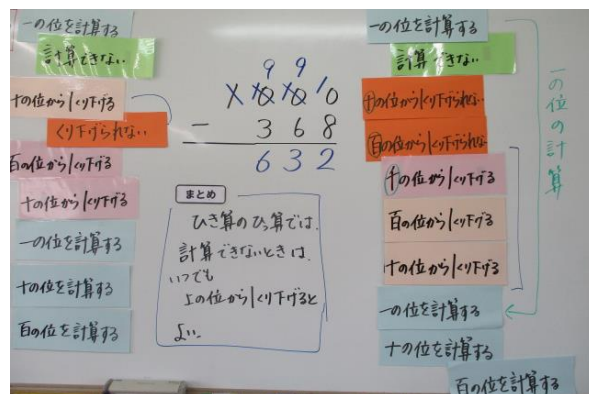 一の位を計算する
計算できない
十の位から1くり下げる
くり下げられない
百の位から1くり下げる
十の位から1くり下げる
一の位を計算する
十の位を計算する
百の位を計算する
9 9
1000
10
- 368
632
まとめ
ひき算のひっ算では、
計算できないときは、
いつでも
上の位から1くり下げると
よい。
一の位を計算する
計算できない
十の位から1くり下げられない
百の位から1くり下げられない
十の位から1くり下げる
百の位から1くり下げる
十の位から1くり下げる
一の位を計算する
十の位を計算する
百の位を計算する
一の位の計算